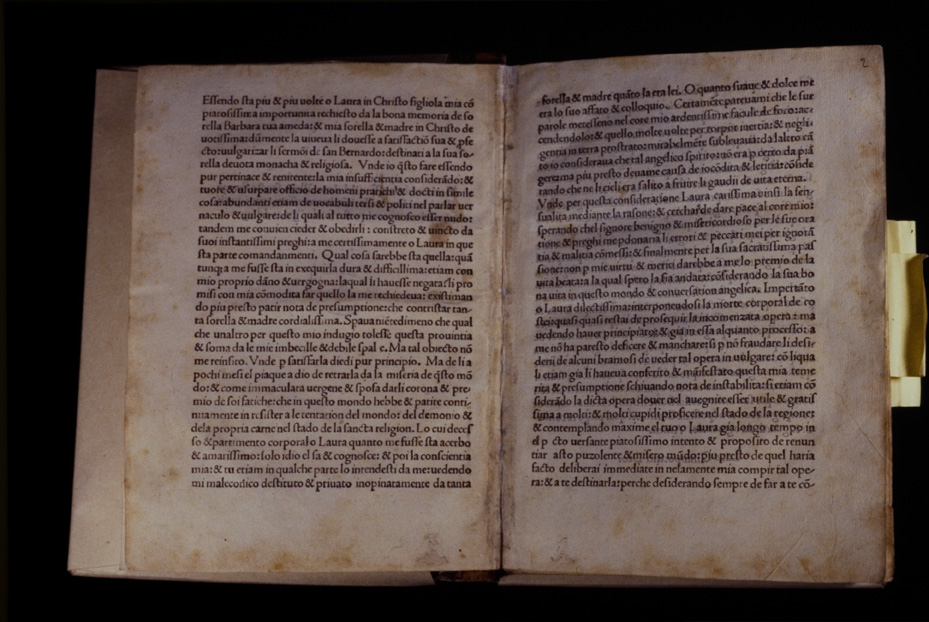 Essendo sta piu & piu uolte o Laura in Christo figliola mia cō
piatosissime a importunita rechiesto da la bona memoria de so
rella Barbara tua ameda: & mia sorella & madre in Christo de
uotissima: & li sermoi di san Bernardo: destinati a la sua so
rella deuota monacha & religiosa. Vnde io q̄sto fare essendo
pur pertinace & renitente: la mia insufficientia considerādo: &
tuore & usurpare officio de homeni pratichi & docti in simile
cosa: abundanti etiam de uocabuli tersi & politi nel parlar uer
naculo & uulgare: de li quali al tutto me cognosco esser nudo:
tandem me conuien cieder & obedirli: constreto & uincto da
suoi instantissimi preghi: ma certissimamente o Laura in que
sta parte comandamenti. Qual cosa sarebbe sta quella: quā
tunqȝ a me fusse sta in exequirla dura & difficillima: etiam con
mio proprio dāno & uergogna: la qual li hauesse negata: si pro
misi con mia cōmodita far quello la me rechiedeua: existiman
do piu presto patir nota de presumptione: che contristar tan
ta sorella & madre cordialissima. Spauatiēredimeno che qual
che unaltro per questo mio indugio tolesse questa prouintia
& soma da le mie imbecille & debile spale. Ma tal obiecto nō
me reinsite. Vnde p satisfarla diedi pur principio. Ma de li a
pochi mesi el piaque a dio de retrarla da la miseria de q̄sto mō
do: & come immaculata uergene & sposa darli corona & pre
mio de soi fatiche: che in questo mondo hebbe & patite conti
nuamente in resister a le tentation del mondo: del demonio &
dela propria carne nel stado de la sancta religion. Lo cui deces
so & partimento corporal o Laura quanto me fusse sta acerbo
& amarissimo: solo idio el sa & cognosce: & poi la conscientia
mia: & tu etiam in qualche parte lo intendesti da me: uedendo
mi malecodico destituto & priuato inopinatamente da tanta
2
sorella & madre quāto la era lei. O quanto suaue & dolce me
era lo suo affato & colloquio. Certamēte pareuami che le sue
parole metesseno nel core mio ardentissime facule de foco: ac
cendendolo: & quello molte uolte per torpor inertia: & negli
gentia in terra prostrato: mirabelmēte subleuaua: da laltro cā
to io consideraua che tal angelico spirito: uo era p certo da piā
gere: ma piu presto deuame causa de iocōdita & letitia: cōside
rando che ne li cieli era salito a fruire li gaudii de uita eterna.
Vnde per questa consideratione Laura carissima uinsi la sen
sualita mediante la rasone: & cerchai de dare pace al core mio:
sperando chel signore benigno & misericordioso per le sue ora
tione & preghi me pdonaria li errori & peccati mei per ignorā
tia & malitia cōmessi: & finalmente per la sua sacratissima pas
sione: non p mie uirtu & meriti darebbe a me lo premio de la
uita beata: a la qual spero la sia andata: cōsiderando la sua bo
na uita in questo mondo & conuersation angelica. Impertāto
o Laura dilectissima: interponēdosi la morte corporal de co
stei: quasi quasi restai de prosequir la incomenzata opera: ma
uedendo hauer principiato: & gia in essa alquanto processo: a
me nō ha paresto deficere & mancharet: si p nō fraudare li desi
derii de alcuni bramosi de ueder tal opera in uulgare: cō liqua
li etiam gia li haueua conferito & manifestato questa mia teme
rita & presumptione schiuando nota de instabilita: si etiam cō
siderādo la dicta opera douer nel auegnire esser utile & gratis
sima a molti: & molti cupidi proficere nel stado de la regione:
& contemplando maxime el tuo o Laura gia longo tempo in
el p cto uersante piatosissimo intento & proposito de renun
tiar asto puzolente & misero mūdo: piu presto de quel haria
facto deliberai immediate in nelamente mia compir tal ope
ra: & a te destinarla: perche desiderando sempre de far a te cō